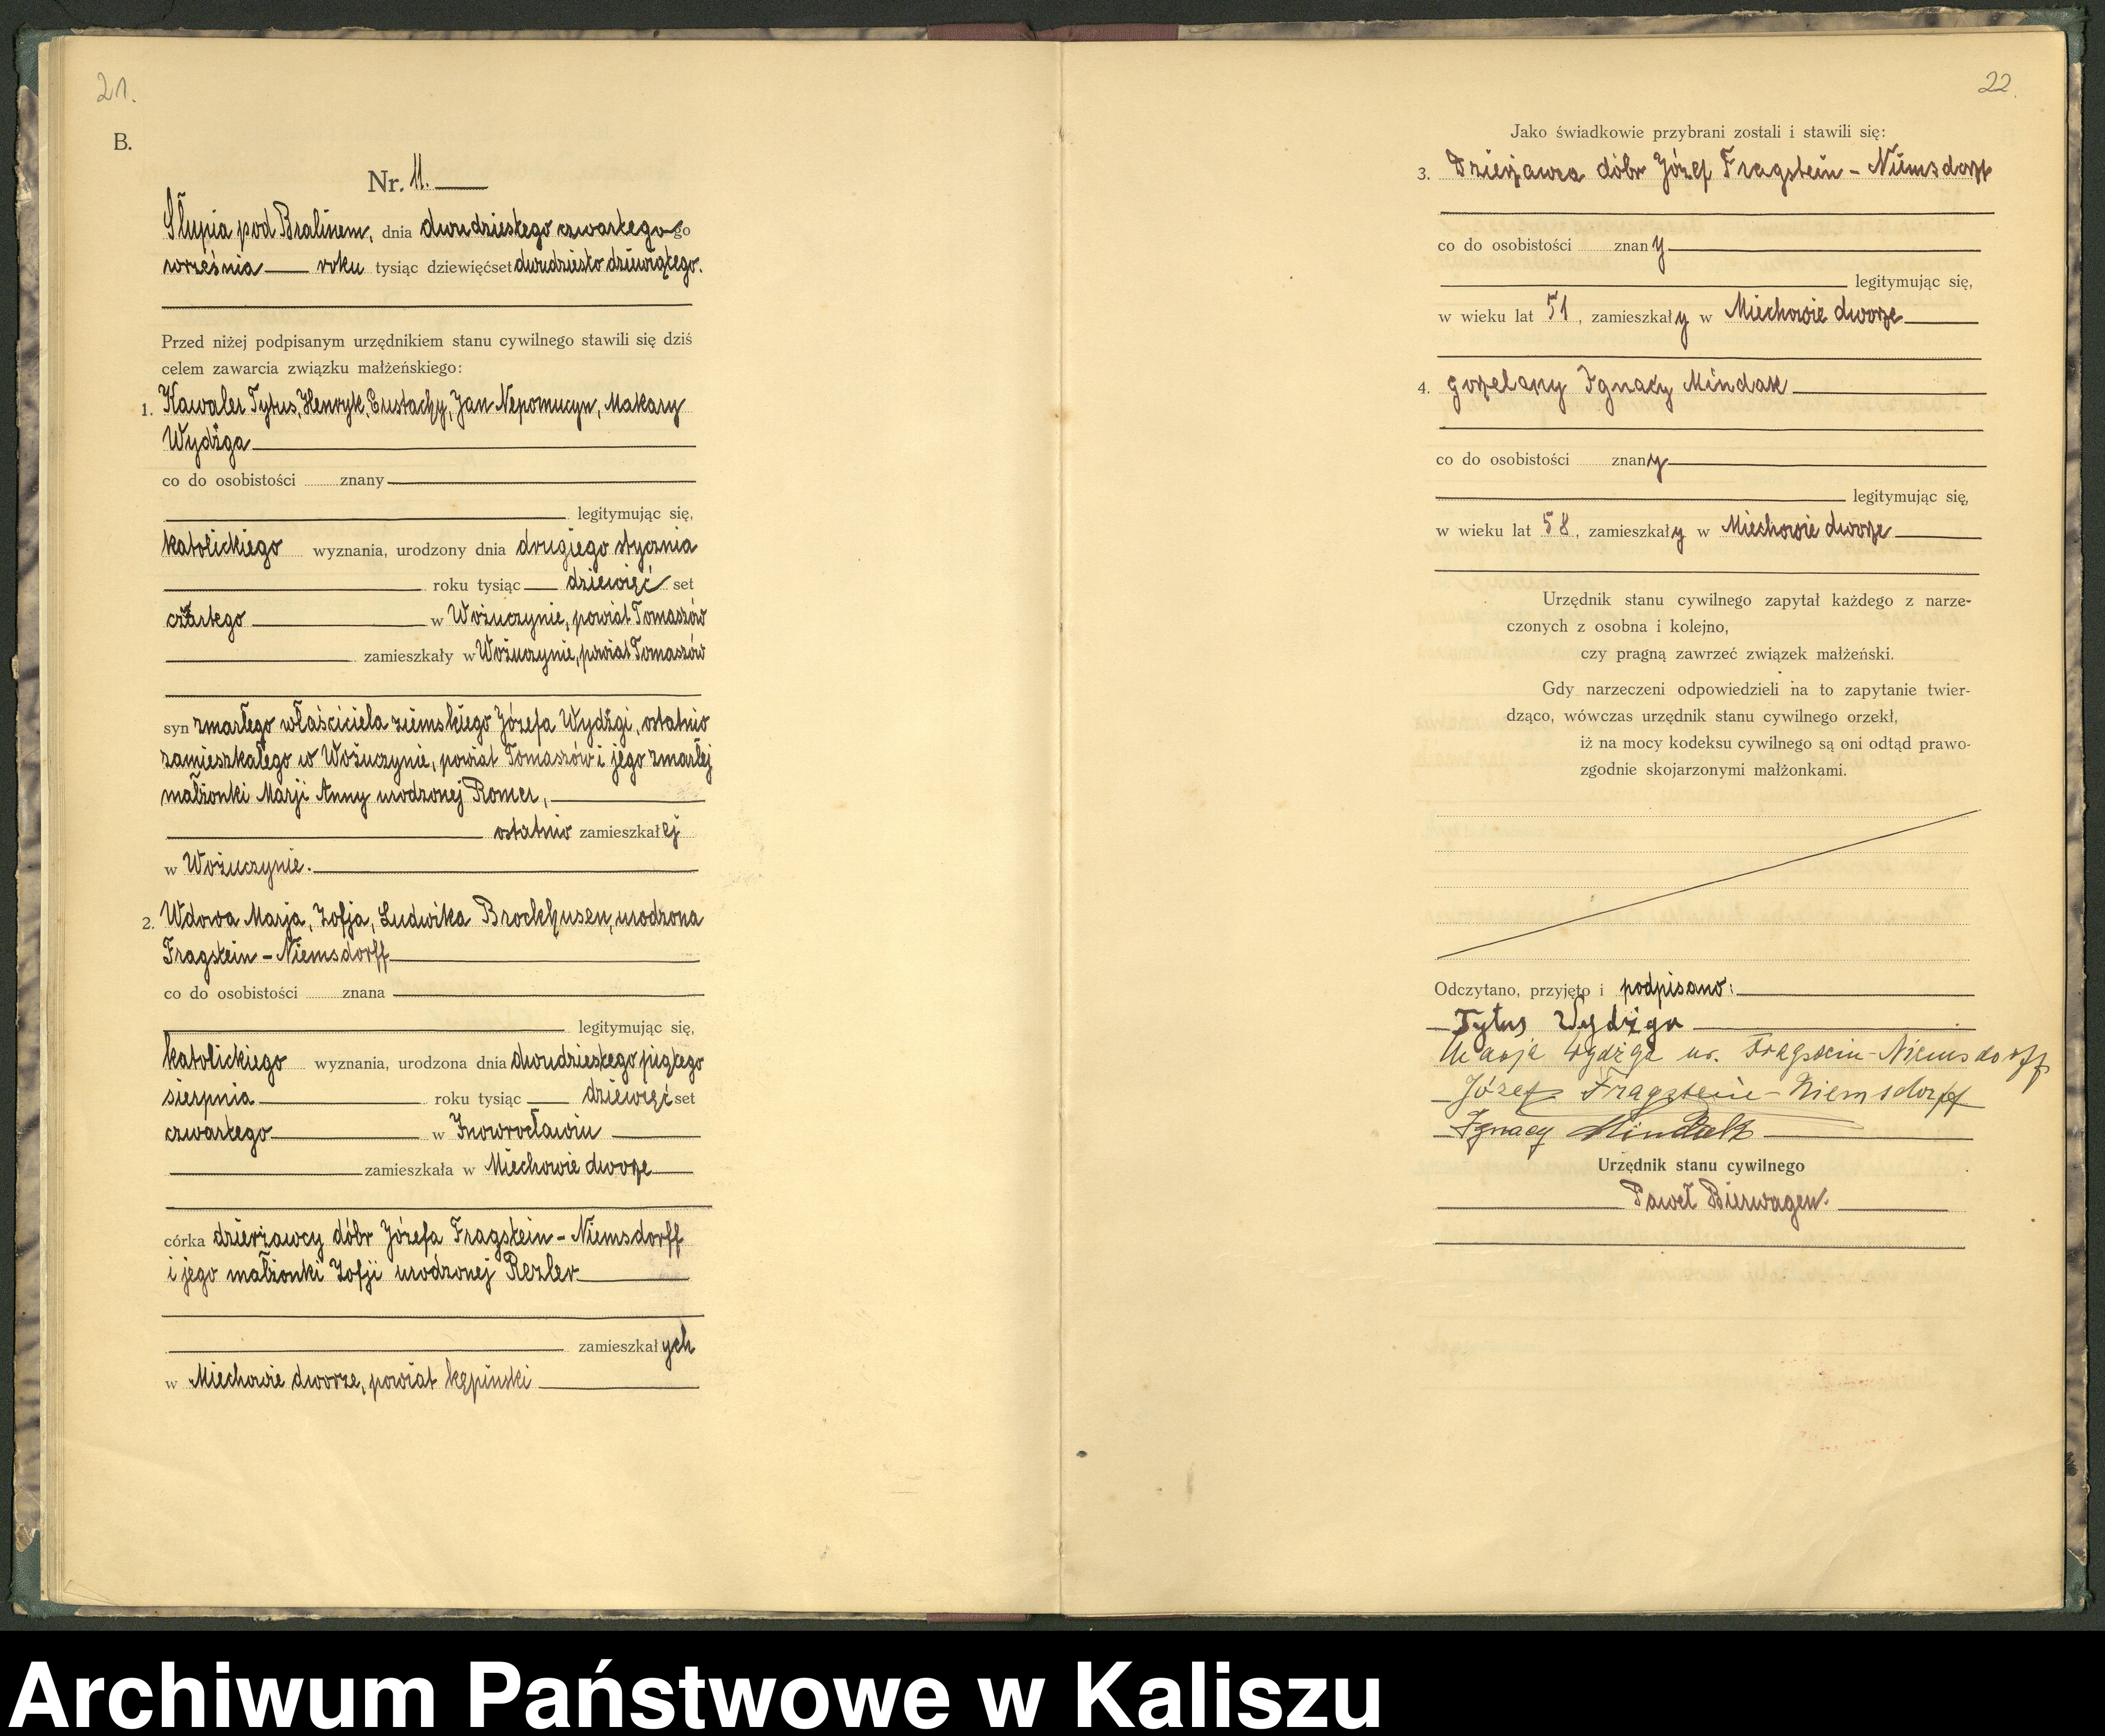 21.
B.
Nr. 11.
Słupia pod Bralinem, dnia dwudziestego czwartego go
września roku tysiąc dziewięćset dwudziesto dziewiątego.
Przed niżej podpisanym urzędnikiem stanu cywilnego stawili się dziś
celem zawarcia związku małżeńskiego:
1. Kawaler Tytus, Henryk, Eustachy, Jan Nepomucyn, Makary
Wydżga
co do osobistości znany
legitymując się,
katolickiego wyznania, urodzony dnia drugiego stycznia
roku tysiąc dziewięć set
czwartego w Wożuczynie, powiat Tomaszów
zamieszkały w Wożuczynie, powiat Tomaszów
syn zmarłego właściciela ziemskiego Józefa Wydżgi, ostatnio
zamieszkałego w Wożuczynie, powiat Tomaszów i jego zmarłej
małżonki Marji Anny urodzonej Romer,
ostatnio zamieszkałej
w Wożuczynie.
2. Wdowa Marja, Zofja, Ludwika Brockhusen, urodzona
Fragstein - Niemsdorff
co do osobistości znana
legitymując się,
katolickiego wyznania, urodzona dnia dwudziestego piątego
sierpnia roku tysiąc dziewięć set
czwartego w Inowrocławiu
zamieszkała w Miechowie dworze
córka dzierżawcy dóbr Józefa Fragstein - Niemsdorff
i jego małżonki Zofji urodzonej Rezler
zamieszkałych
w Miechowie dworze, powiat kępiński
22.
Jako świadkowie przybrani zostali i stawili się:
3. Dzierżawca dóbr Józef Fragstein - Niemsdorff
co do osobistości znany
legitymując się,
w wieku lat 51, zamieszkały w Miechowie dworze
4. gorzelany Ignacy Mindak
co do osobistości znany
legitymując się,
w wieku lat 58, zamieszkały w Miechowie dworze
Urzędnik stanu cywilnego zapytał każdego z narze-
czonych z osobna i kolejno,
czy pragną zawrzeć związek małżeński.
Gdy narzeczeni odpowiedzieli na to zapytanie twier-
dząco, wówczas urzędnik stanu cywilnego orzekł,
iż na mocy kodeksu cywilnego są oni odtąd prawo-
zgodnie skojarzonymi małżonkami.
Odczytano, przyjęto i podpisano:
Tytus Wydżga
Marja Wydżga ur. Fragstein - Niemsdorff
Józef Fragstein - Niemsdorff
Ignacy Mindak
Urzędnik stanu cywilnego
Paweł Bierwagen.
Archiwum Państwowe w Kaliszu